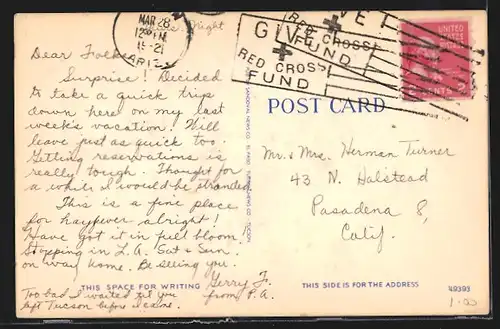 MAR 28
12 PM
ARIZ
Night
GIVE
RED CROSS
FUND
GIVE
RED CROSS
FUND
UNITED STATES
2 CENTS 2
Dear Folks,
Surprise! Decided
to take a quick trip
down here on my last
week's vacation. Will
leave just as quick too.
Getting reservations is
really tough. Thought for
a while I would be stranded.
This is a fine place
for hayfever alright!
Have got it in full bloom.
Stopping in L.A. Sat & Sun.
on way home. Be seeing you.
Gerry F.
from P.A.
Too bad I waited til you
left Tucson before I came.
THIS SPACE FOR WRITING
SANDOVAL NEWS CO. EL PASO
TUCSON
POST CARD
Mr. & Mrs. Herman Turner
43 N. Halstead
Pasadena 8,
Calif.
THIS SIDE IS FOR THE ADDRESS
49393
1.00